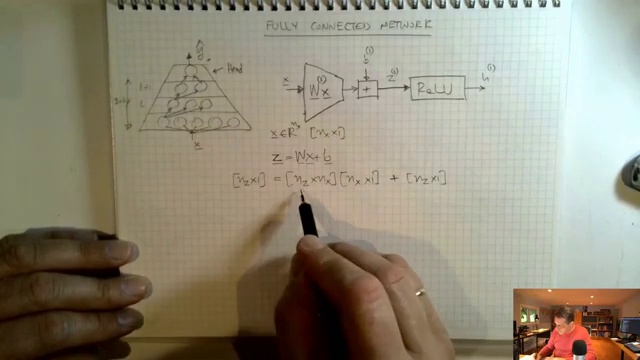 FULLY CONNECTED NETWORK
ŷ
Head
L+1
L
x
x
W^(1) x
b^(1)
+
z^(1)
ReLU
h^(1)
x ∈ R^(n_x) [n_x x 1]
z = Wx + b
[n_z x 1] = [n_z x n_x] [n_x x 1] + [n_z x 1]